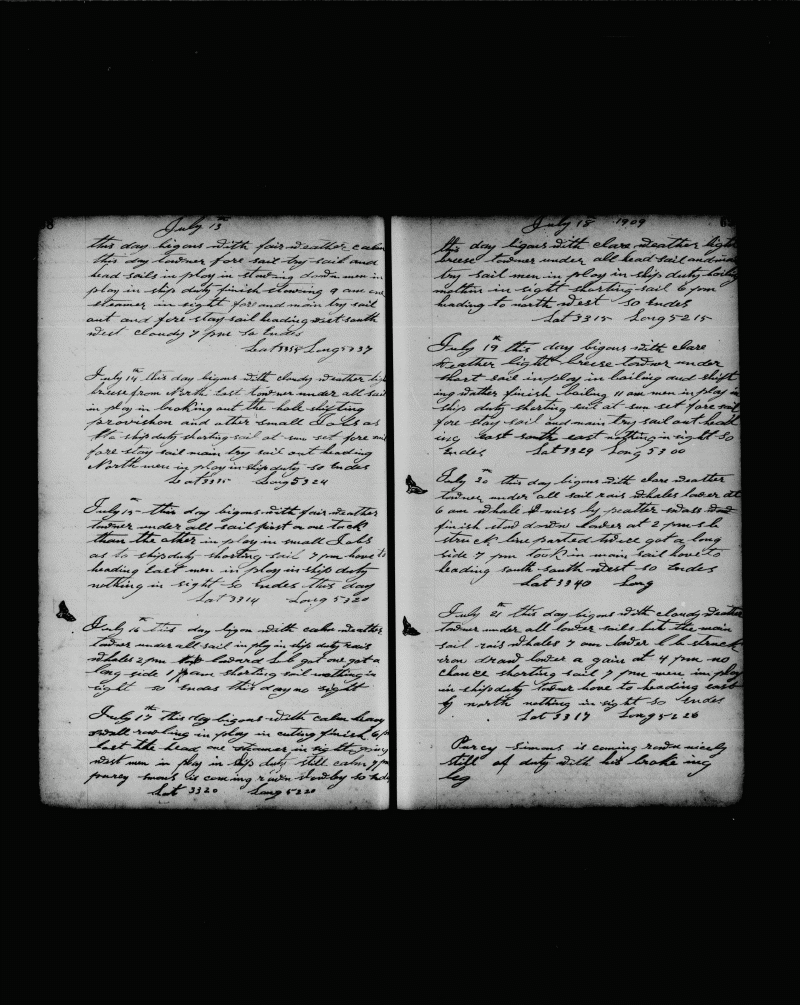 July 13th
this day bigons with fair weather calm
this day towner fore sail try sail and
head sails in ploy in stowing down men in
ploy in ship duty finish stowing 9 am one
steamer in sight fore and main try sail
out and fore stay sail heading west south
west cloudy 7 pm so Endes
Lat 3358 Long 5337
July 14th this day bigons with cloudy weather
breese from North East towner under all sail
in ploy in broking out the hole shifting
provishon and other small Jobs as
to ship duty shorting sail at sun set fore and
fore stay sail main try sail out heading
North men in ploy in ship duty so Endes
Lat 3335 Long 5324
July 15th this day bigons with fair weather
towner under all sail first on one tack
than the other in ploy in small Jobs
as to ship duty shorting sail 7 pm hove to
heading East men in ploy in ship duty
nothing in sight so Endes this day
Lat 3314 Long 5320
July 16th this day bigon with calm weather
towner under all sail in ploy in ship duty rais
whales 2 pm loward got one got a
long side 7 pm shorting sail nothing in
sight so endes this day no sight
July 17th this day bigons with calm heavy
swall rowling in ploy in cuting finish 6 pm
last the head one steamer in sight going
west men in ploy in ship duty still calm 7 pm
is coming rown slowly so Endes
Lat 3320 Long 5220
July 18 1909
this day bigons with clare weather light
breese towner under all head sail and main
try sail men in ploy in ship duty boiling
nothin in sight shorting sail 6 pm
heading to north west so Endes
Lat 3315 Long 5215
July 19th this day bigons with clare
weather light breese towner under
short sail in ploy in boiling and shift
ing wather finish boiling 11 am men in ploy in
ship duty shorting sail at sun set fore sail
fore stay sail and main try sail out head
ing east south east nothing in sight so
Endes Lat 3329 Long 5300
July 20th this day bigons with clare weather
towner under all sail rais whales lower at
6 am whale
finish stow down lower at 2 pm s b
struck line parted twice got a long
side 7 pm took in main sail hove to
heading south south west so Endes
Lat 3340 Long
July 21th this day bigons with cloudy weather
towner under all lower sails but the main
sail rais whales 7 am lower l b struck
iron draw lower a gain at 4 pm no
chance shorting sail 7 pm men in ploy
in ship duty towner hove to heading east
by north nothing in sight so Endes
Lat 3317 Long 5226
Percy Simons is coming rown nicely
still of duty with his broke ing
leg